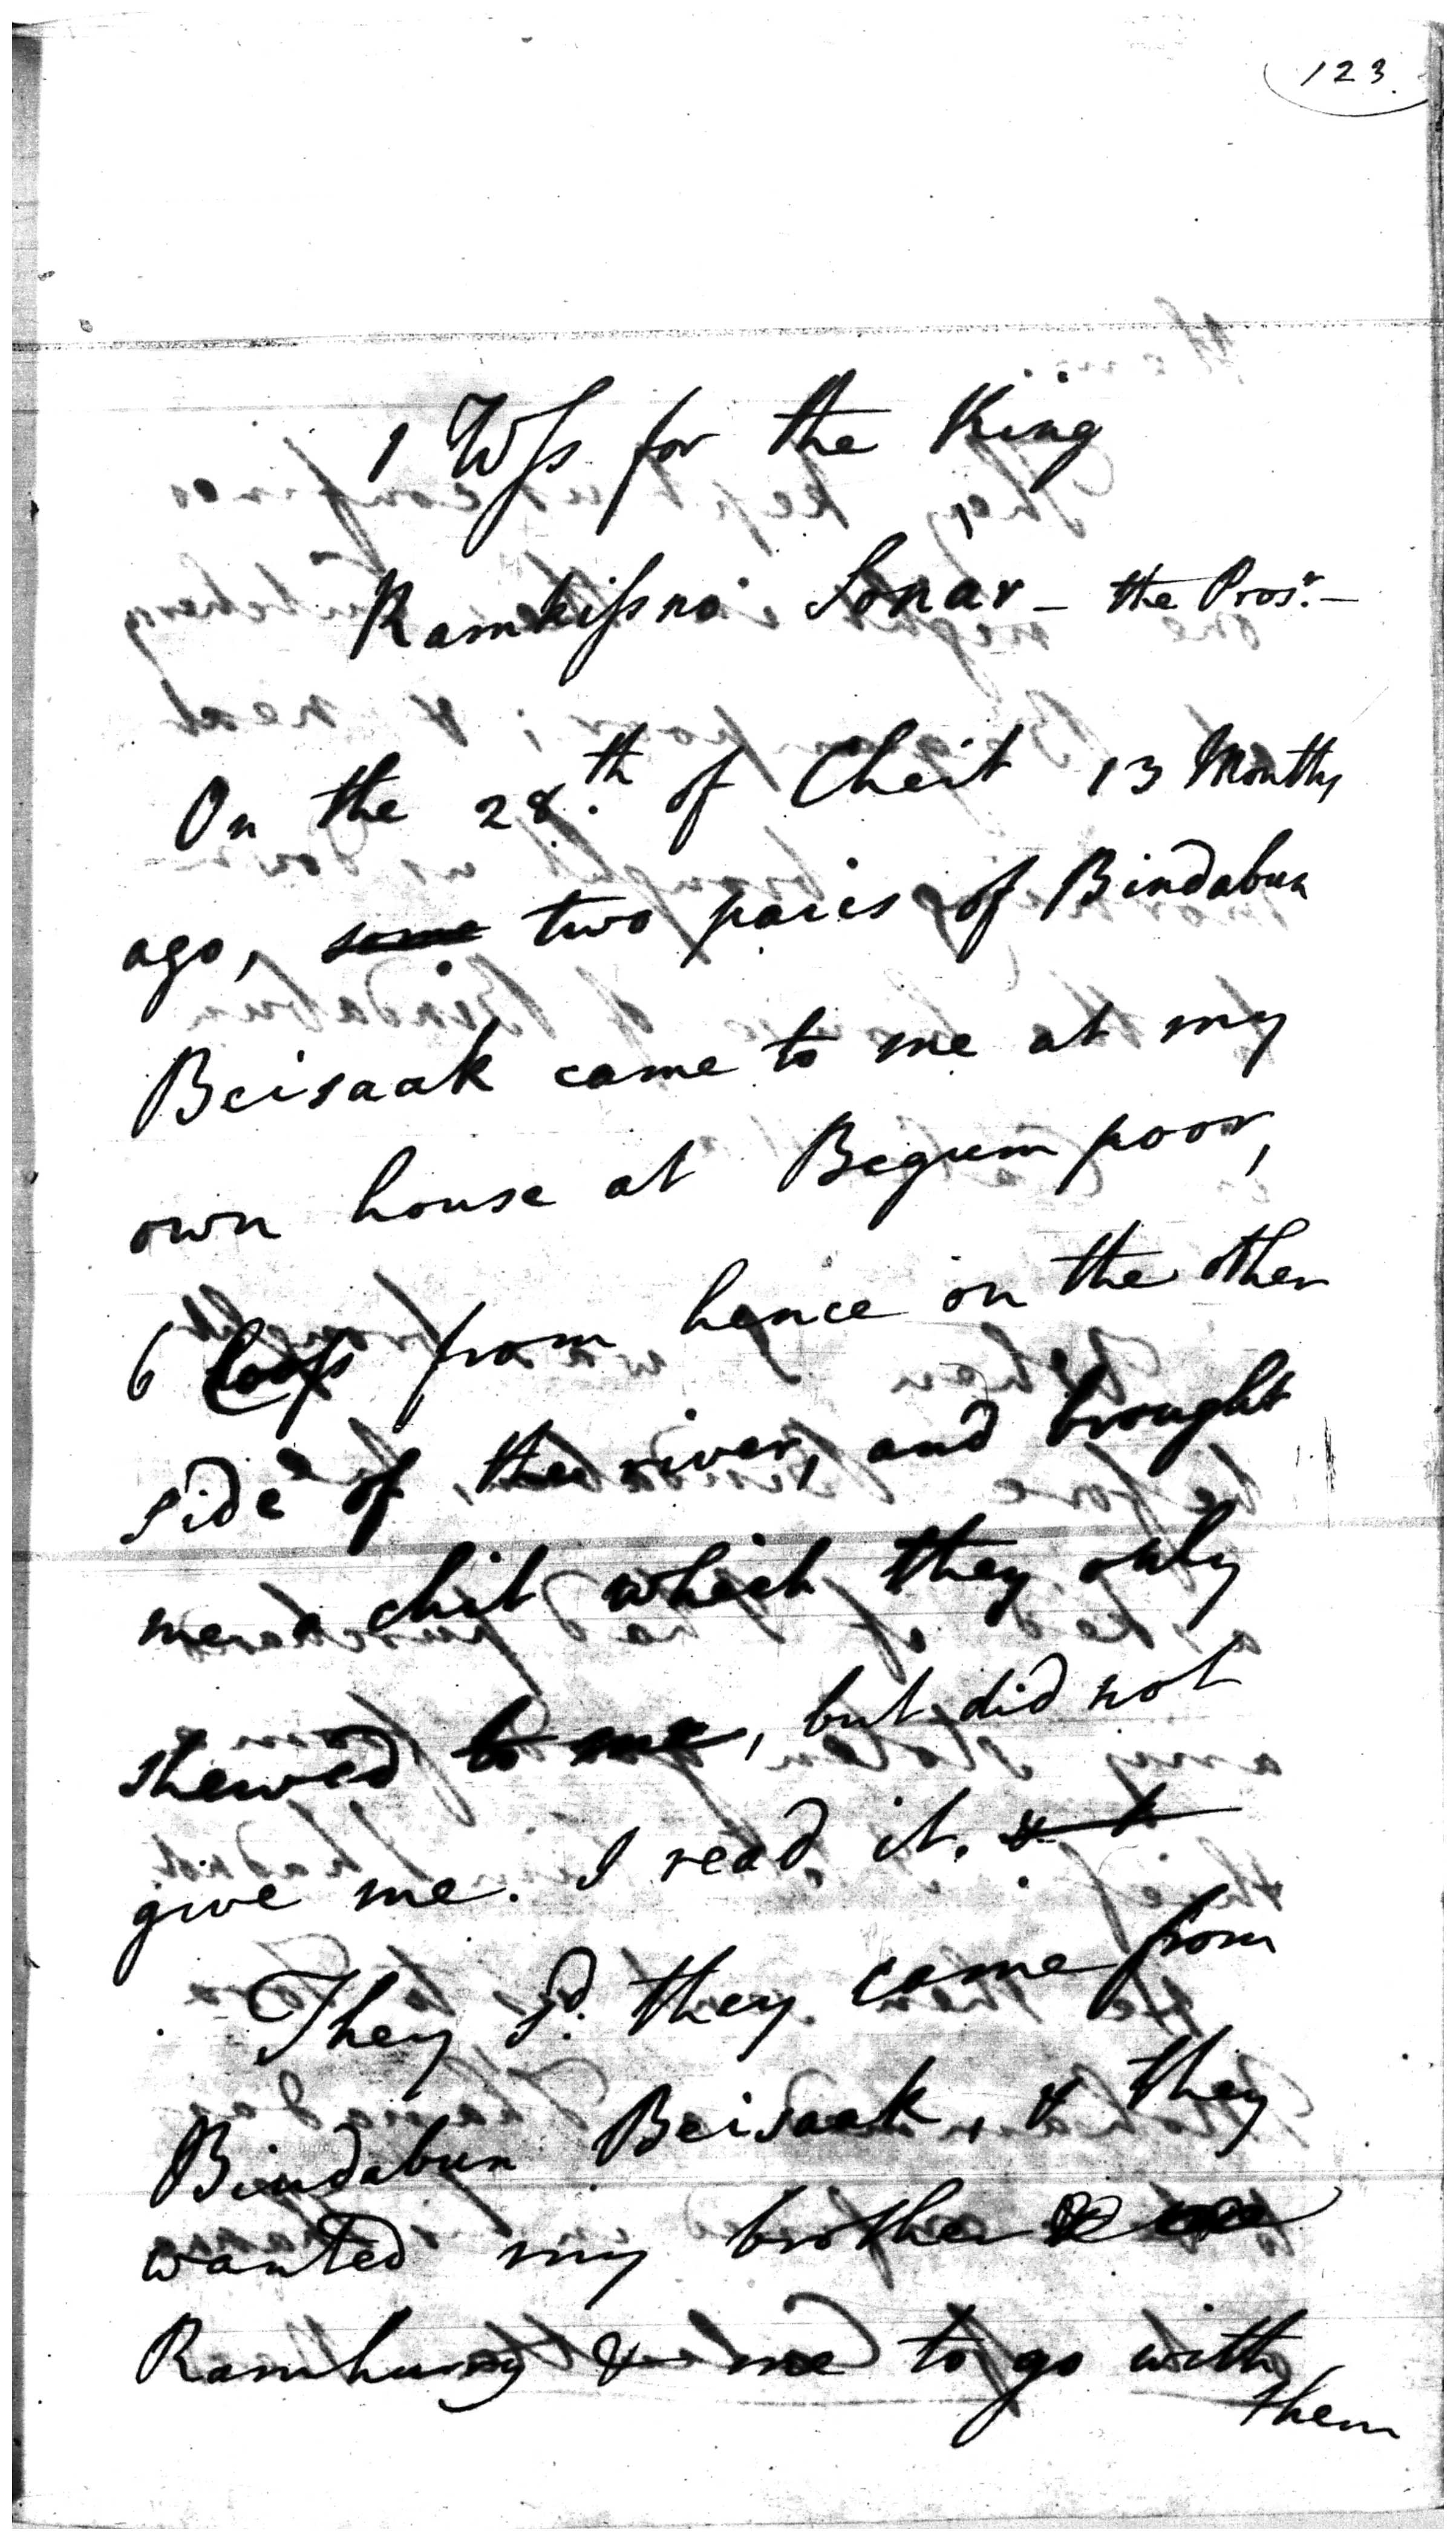 123
1 Wss for the King
Ramkissno Sonar - the Prosr. -
On the 28.th of Cheit 13 Months
ago, some two paies of Bindabun
Beisaak came to me at my
own house at Begum poor,
6 Coss from hence on the other
side of the river, and brought
me a chit which they only
shewed to me, but did not
give me. I read it. &
They sd. they came from
Bindabun Beisaak, & they
wanted my brother
Ramhurry & me to go with
them